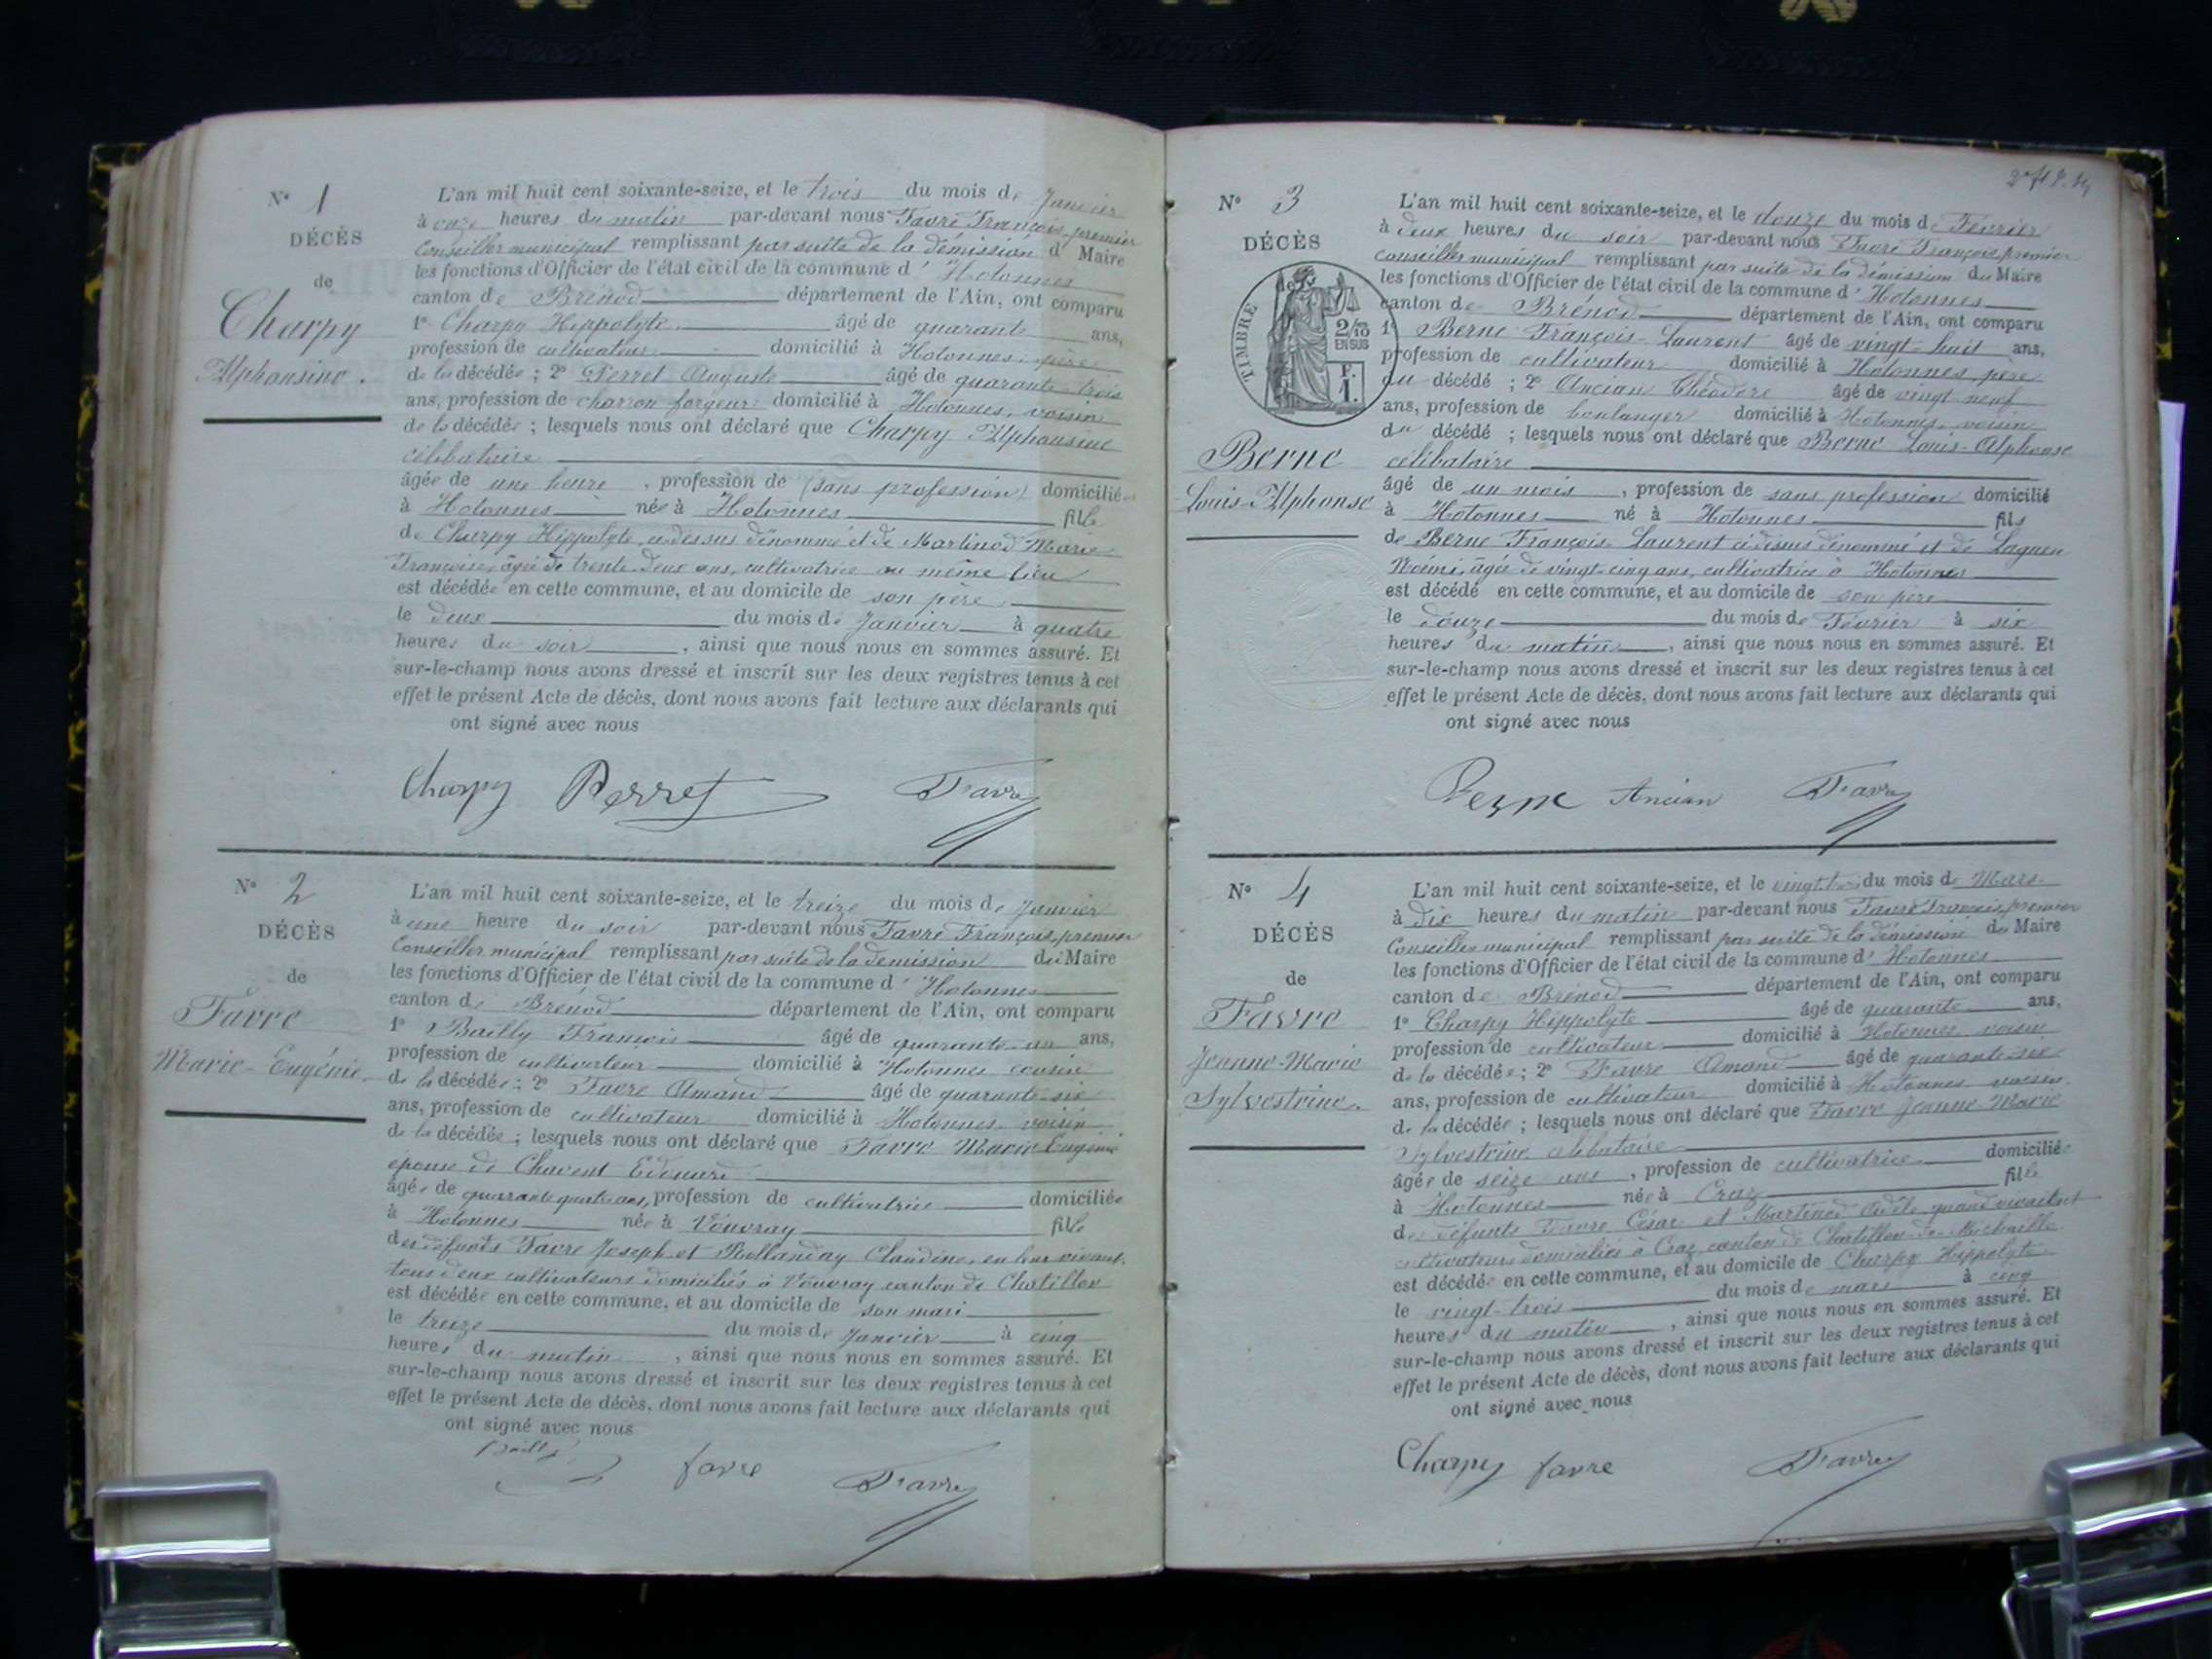 N° 1
DÉCÈS
de
Charpy
Alphonsine.
L'an mil huit cent soixante-seize, et le trois du mois de Janvier
à onze heures du matin par-devant nous Favre François, premier
Conseiller municipal remplissant par suite de la démission d Maire
les fonctions d'Officier de l'état civil de la commune d'Hotonnes
canton de Brénod département de l'Ain, ont comparu
1° Charpy Hippolyte âgé de quarante ans,
profession de cultivateur domicilié à Hotonnes, père
de la décédée ; 2° Perret Auguste âgé de quarante-trois
ans, profession de charron forgeur domicilié à Hotonnes, voisin
de la décédée ; lesquels nous ont déclaré que Charpy Alphonsine
célibataire
âgée de une heure, profession de (sans profession) domiciliée
à Hotonnes née à Hotonnes fille
de Charpy Hippolyte, ci-dessus dénommé et de Martinod Marie
Françoise, âgée de trente-deux ans, cultivatrice au même lieu
est décédée en cette commune, et au domicile de son père
le deux du mois de Janvier à quatre
heures du soir, ainsi que nous nous en sommes assuré. Et
sur-le-champ nous avons dressé et inscrit sur les deux registres tenus à cet
effet le présent Acte de décès, dont nous avons fait lecture aux déclarants qui
ont signé avec nous
Charpy Perret Favre
N° 2
DÉCÈS
de
Favre
Marie-Eugénie
L'an mil huit cent soixante-seize, et le treize du mois de Janvier
à une heure du soir par-devant nous Favre François, premier
Conseiller municipal remplissant par suite de la démission du Maire
les fonctions d'Officier de l'état civil de la commune d'Hotonnes
canton de Brenod département de l'Ain, ont comparu
1° Bailly François âgé de quarante-un ans,
profession de cultivateur domicilié à Hotonnes cousin
de la décédée ; 2° Favre Amand âgé de quarante-six
ans, profession de cultivateur domicilié à Hotonnes voisin
de la décédée ; lesquels nous ont déclaré que Favre Marie Eugénie
épouse de Chavent Edouard
âgée de quarante quatre ans, profession de cultivatrice domiciliée
à Hotonnes née à Vouvray fille
des défunts Favre Joseph et Rollanday Claudine, en leur vivant,
tous deux cultivateurs domiciliés à Vouvray canton de Chatillon
est décédée en cette commune, et au domicile de son mari
le treize du mois de Janvier à cinq
heures du matin, ainsi que nous nous en sommes assuré. Et
sur-le-champ nous avons dressé et inscrit sur les deux registres tenus à cet
effet le présent Acte de décès, dont nous avons fait lecture aux déclarants qui
ont signé avec nous
Bailly favre Favre
N° 3
DÉCÈS
de
TIMBRE
2/10
EN SUS
F.
1.
Berne
Louis-Alphonse
L'an mil huit cent soixante-seize, et le douze du mois de Février
à deux heures du soir par-devant nous Favre François, premier
conseiller municipal remplissant par suite de la démission du Maire
les fonctions d'Officier de l'état civil de la commune d'Hotonnes
canton de Brénod département de l'Ain, ont comparu
1° Berne François-Laurent âgé de vingt-huit ans,
profession de cultivateur domicilié à Hotonnes, père
du décédé ; 2° Ancian Théodore âgé de vingt neuf
ans, profession de boulanger domicilié à Hotonnes voisin
du décédé ; lesquels nous ont déclaré que Berne Louis-Alphonse
célibataire
âgé de un mois, profession de sans profession domicilié
à Hotonnes né à Hotonnes fils
de Berne François Laurent ci-dessus dénommé et de
Noémi, âgée de vingt-cinq ans, cultivatrice à Hotonnes
est décédé en cette commune, et au domicile de son père
le douze du mois de Février à six
heures du matin, ainsi que nous nous en sommes assuré. Et
sur-le-champ nous avons dressé et inscrit sur les deux registres tenus à cet
effet le présent Acte de décès, dont nous avons fait lecture aux déclarants qui
ont signé avec nous
Berne Ancian Favre
N° 4
DÉCÈS
de
Favre
Jeanne-Marie
Sylvestrine.
L'an mil huit cent soixante-seize, et le vingt-trois du mois de Mars
à dix heures du matin par-devant nous Favre François, premier
Conseiller municipal remplissant par suite de la démission du Maire
les fonctions d'Officier de l'état civil de la commune d'Hotonnes
canton de Brénod département de l'Ain, ont comparu
1° Charpy Hippolyte âgé de quarante ans,
profession de cultivateur domicilié à Hotonnes voisin
de la décédée ; 2° Favre Amand âgé de quarante-six
ans, profession de cultivateur domicilié à Hotonnes voisin
de la décédée ; lesquels nous ont déclaré que Favre Jeanne-Marie
Sylvestrine célibataire
âgée de seize ans, profession de cultivatrice domiciliée
à Hotonnes née à Craz fille
des défunts Favre César et Martinod Adèle, quand vivaient
cultivateurs domiciliés à Craz, canton de Chatillon-de-Michaille
est décédée en cette commune, et au domicile de Charpy Hippolyte
le vingt-trois du mois de mars à cinq
heures du matin, ainsi que nous nous en sommes assuré. Et
sur-le-champ nous avons dressé et inscrit sur les deux registres tenus à cet
effet le présent Acte de décès, dont nous avons fait lecture aux déclarants qui
ont signé avec nous
Charpy favre Favre